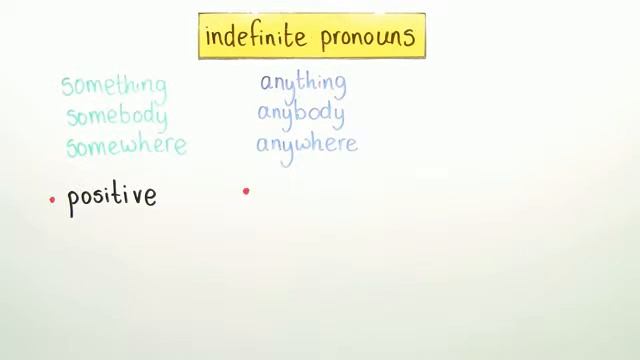 indefinite pronouns
something anything
somebody anybody
somewhere anywhere
• positive •